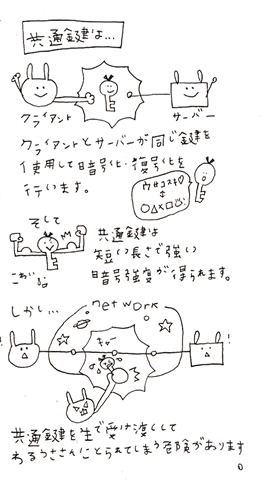 共通鍵は...
クライアント
サーバー
クライアントとサーバーが同じ鍵を
使用して暗号化・復号化を
行います。
そして
共通鍵は
短い長さで強い
暗号強度が得られます。
しかし...
network
キャー
共通鍵を生で受け渡しして
わるうさぎさんにとられてしまう危険があります